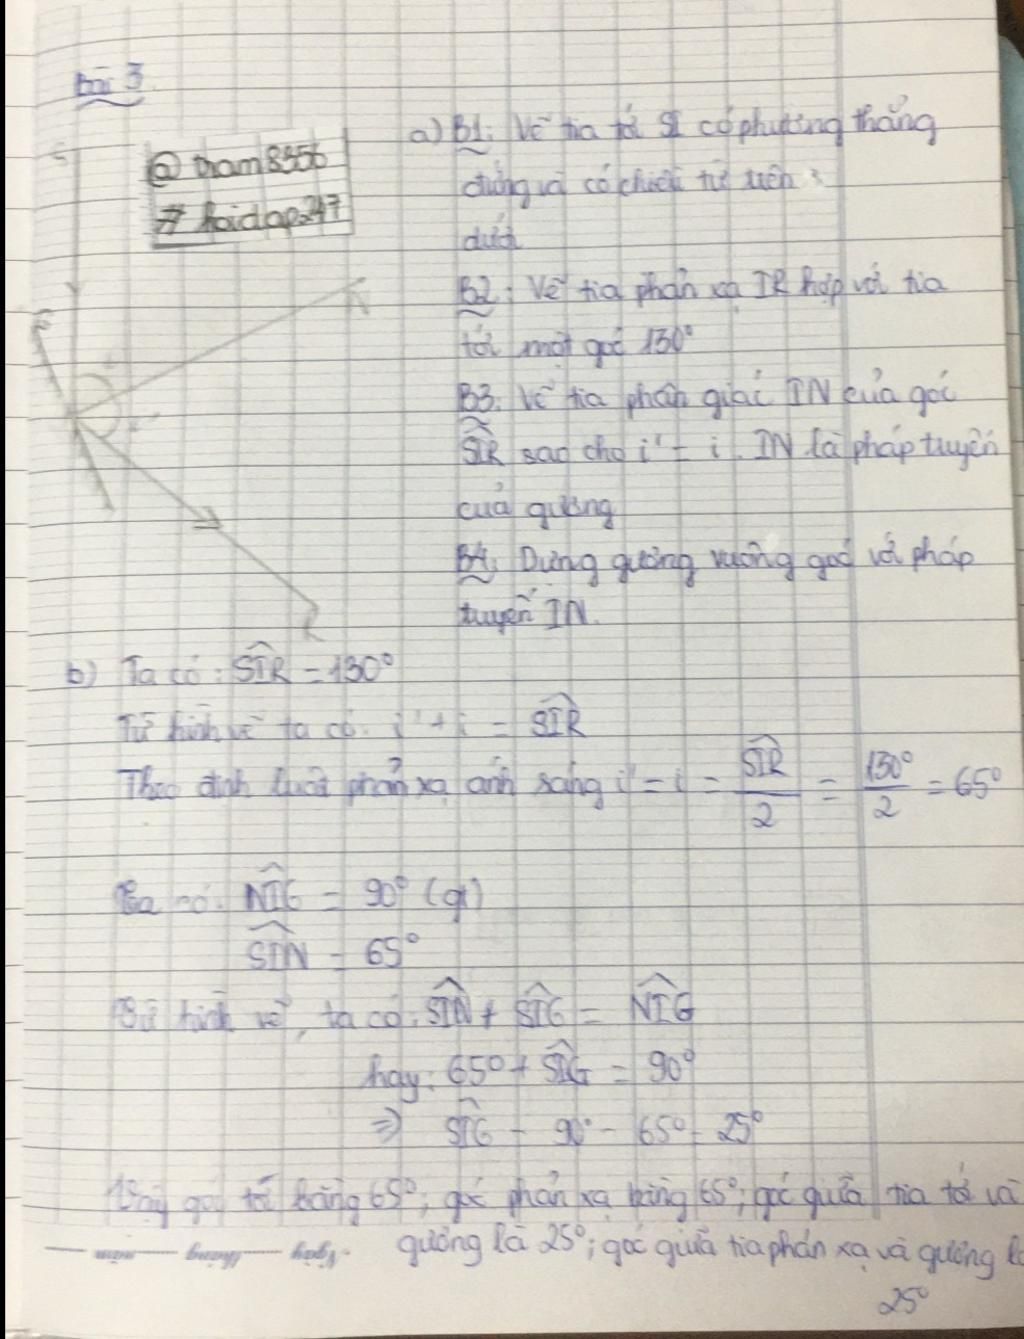 Bài 3.
@ tham8556
# hoidap247
a) B1: Vẽ tia tới SI có phương thẳng
đứng và có chiều từ trên
dưới
B2: Vẽ tia phản xạ IR hợp với tia
tới một góc 130°
B3. Vẽ tia phân giác IN của góc
SIR sao cho i' = i. IN là pháp tuyến
của gương
B4: Dựng gương vuông góc với pháp
tuyến IN.
S
N
I
G
R
b) Ta có: SIR = 130°
Từ hình vẽ ta có. i' + i = SIR
Theo định luật phản xạ ánh sáng i' = i = SIR/2 = 130°/2 = 65°
Ta có: NIG = 90° (gt)
SIN = 65°
Từ hình vẽ, ta có. SIN + SIG = NIG
hay: 65° + SIG = 90°
⇒ SIG = 90° - 65° = 25°
Vậy góc tới bằng 65°; góc phản xạ bằng 65°; góc giữa tia tới và
gương là 25°; góc giữa tia phản xạ và gương là
25°
Ngày tháng năm